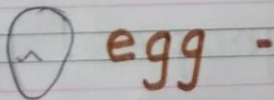 egg -